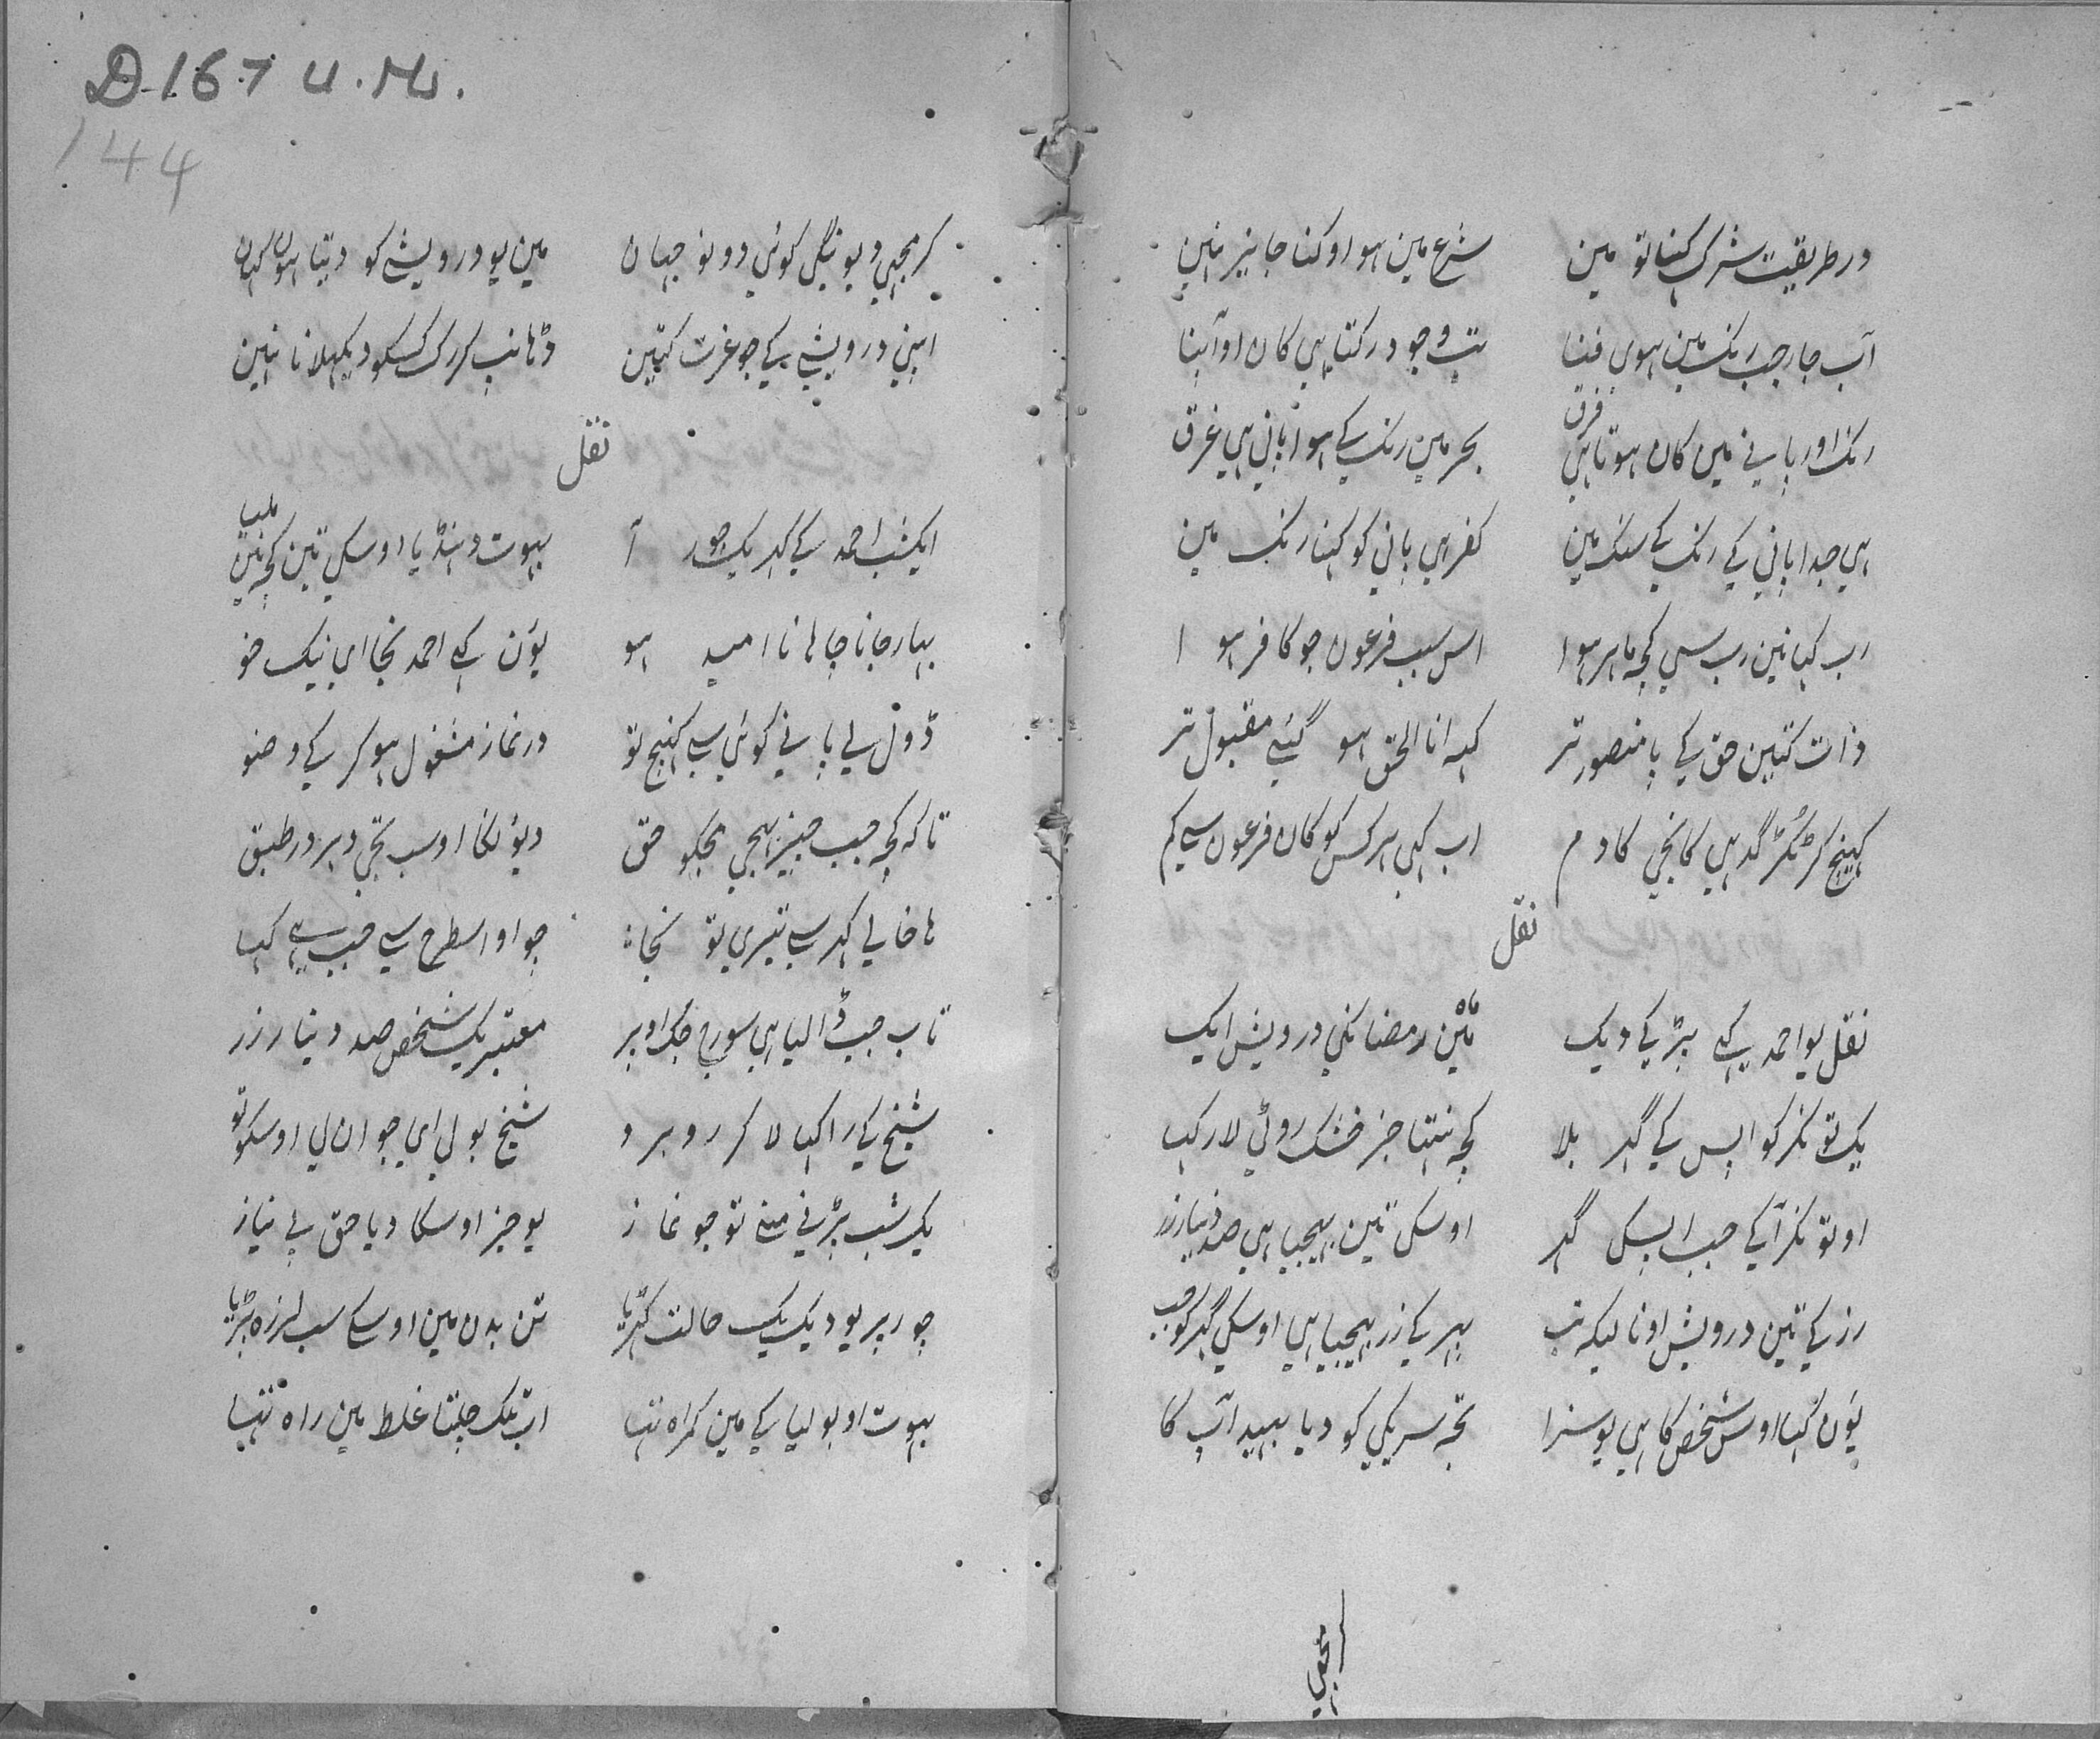 در طریقیت شرک کہنا تو مین شرع مین ہوا وکنا جائیز نہین
آب جا رجب رنک مین ہوی فنا تب وجود رکتا ہی کان او آپنا
رنک اور پانی مین کان ہوتا ہی فرق بحر مین رنک کے ہوا پانی ہی غرق
ہی جدا پانی کے رنک کے سنک مین کفر ہی پانی کو کہنا رنک مین
رب کہا نین رب سی کچہ ماہر ہوا اس سبب فرعون جو کافر ہوا
ذات کتین حق کے پا منصور تر کہہ انا الحق ہو گئے مقبول تر
کہینچ کر گد ہی کا دم اب کہی ہر کس کو کان فرعون سے کم
نقل
نقل یو احمد کے بڑکے دیک تئین ماہ رمضانکی درویش ایک
یک تونکر کو اپس کے گہر بلا کچہ خشک روٹی لا رکہا
او تونکر آکے جب اپسکی گہر اوسکی تئین بہیجیا ہی صد دینار زر
زر کے تئین درویش اونا لیکہ تب پہر کے زر بہیجیا ہی اوسکے گہر کو جب
یون کہا اوس شخص کا ہی یو سزا تجہ سریکے کو دیا بہید آپ کا
کر مجہی
D 167 U.M.
144
کر مجہی دیونگی کوئی دونو جہان مین یو درویشے کو دیتا ہون کہان
اپنی درویشے کے جو عزت کتین ڈہانپ کر رک کسکو دیکہلانا نہین
نقل
ایکشب احمد کے گہر یک چور آ بہوت دہنڈیا اوسکی تین کچہ نین ملیا
بہار جانا چاہا نا امید ہو یون کہے احمد نجا ای نیک خو
ڈول لے پانی کوئی سے کہینچ تو در نماز مشغول ہو کر کے وضو
تاکہ کچہ جب چیز بہیجی مجکو حق دیونگا او سب تجہی دہر در طبق
ہا خالی گہر سے تیری تو نجا جو او اسطرح سے جب سے کہا
تاب جب ڈالیا ہی سورج جک اوپر معتبر یک شخص صد دینار زر
شیخ کے را کہیا لا کر روبرو شیخ بولی ای جوان لی اوسکو تو
یک شب پڑنی منے تو جو نماز یو جز اوسکا دیا حق بے نیاز
چور پر یو دیک یک حالت کہڑیا تن بدن مین اوسکے سب لرزہ پڑیا
بہوت او بولیا کے مین کمراہ تہا اب تلک چلتا غلط مین راہ تہا